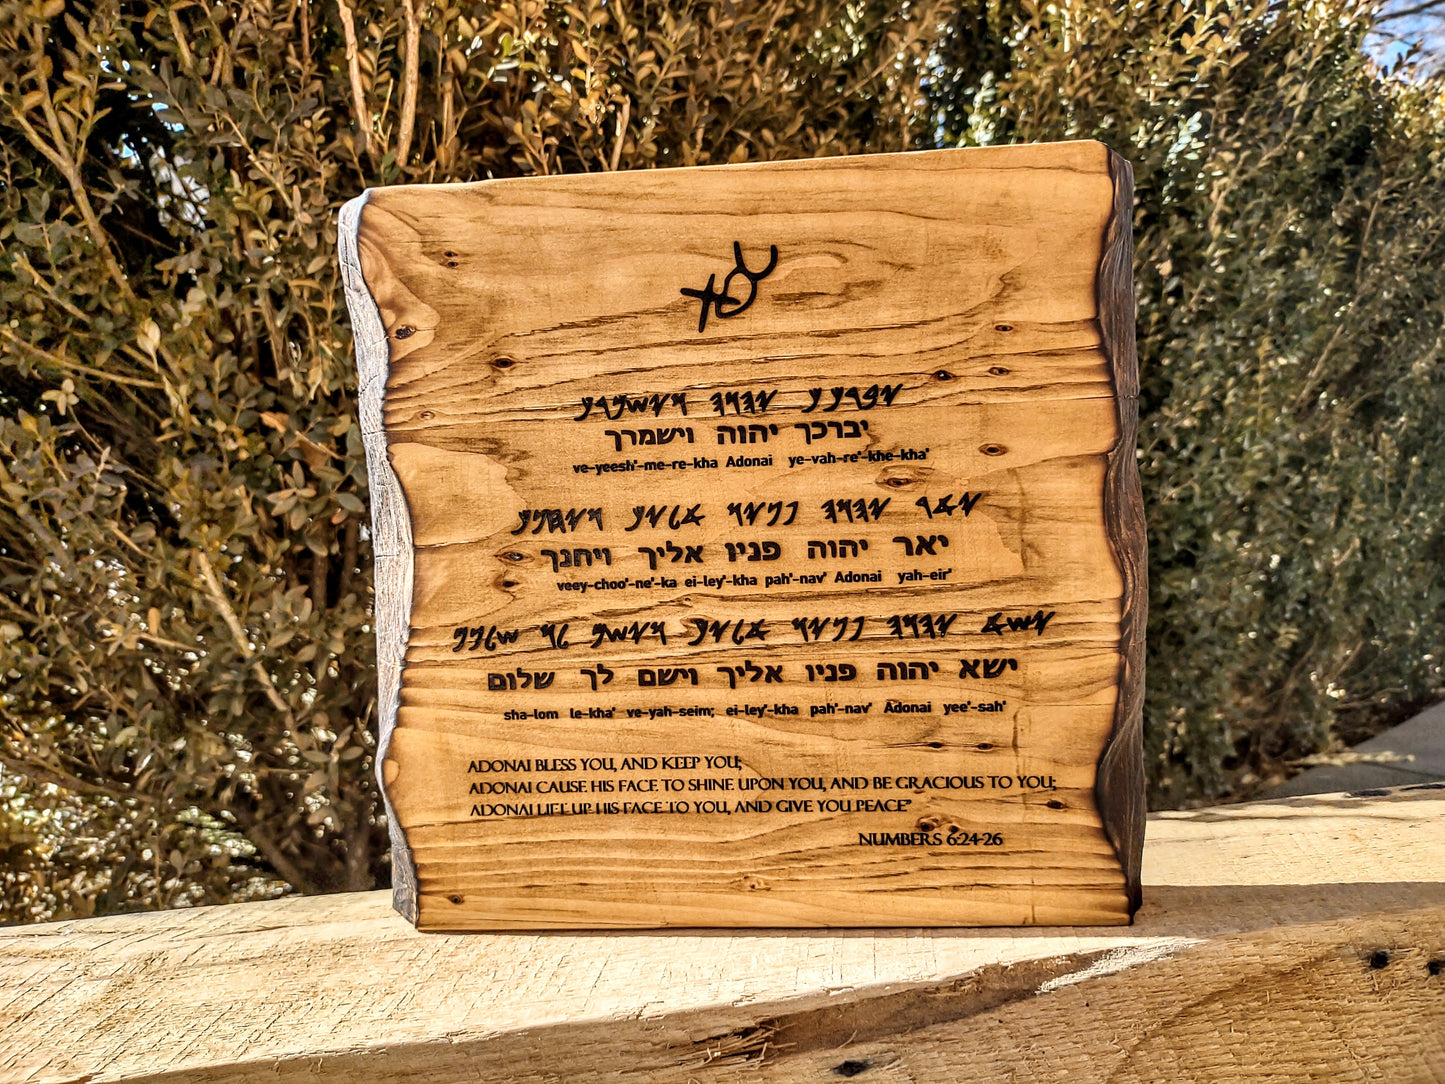 𐤉𐤁𐤓𐤊𐤊 𐤉𐤄𐤅𐤄 𐤅𐤉𐤔𐤌𐤓𐤊
יברכך יהוה וישמרך
ve-yeesh'-me-re-kha Adonai ye-vah-re'-khe-kha'
𐤉𐤀𐤓 𐤉𐤄𐤅𐤄 𐤐𐤍𐤉𐤅 𐤀𐤋𐤉𐤊 𐤅𐤉𐤇𐤍𐤊
יאר יהוה פניו אליך ויחנך
veey-choo'-ne'-ka ei-ley'-kha pah'-nav' Adonai yah-eir'
𐤉𐤔𐤀 𐤉𐤄𐤅𐤄 𐤐𐤍𐤉𐤅 𐤀𐤋𐤉𐤊 𐤅𐤉𐤔𐤌 𐤋𐤊 𐤔𐤋𐤅𐤌
ישא יהוה פניו אליך וישם לך שלום
sha-lom le-kha' ve-yah-seim; ei-ley'-kha pah'-nav' Adonai yee'-sah'
ADONAI BLESS YOU, AND KEEP YOU;
ADONAI CAUSE HIS FACE TO SHINE UPON YOU, AND BE GRACIOUS TO YOU;
ADONAI LIFT UP HIS FACE TO YOU, AND GIVE YOU PEACE"
NUMBERS 6:24-26